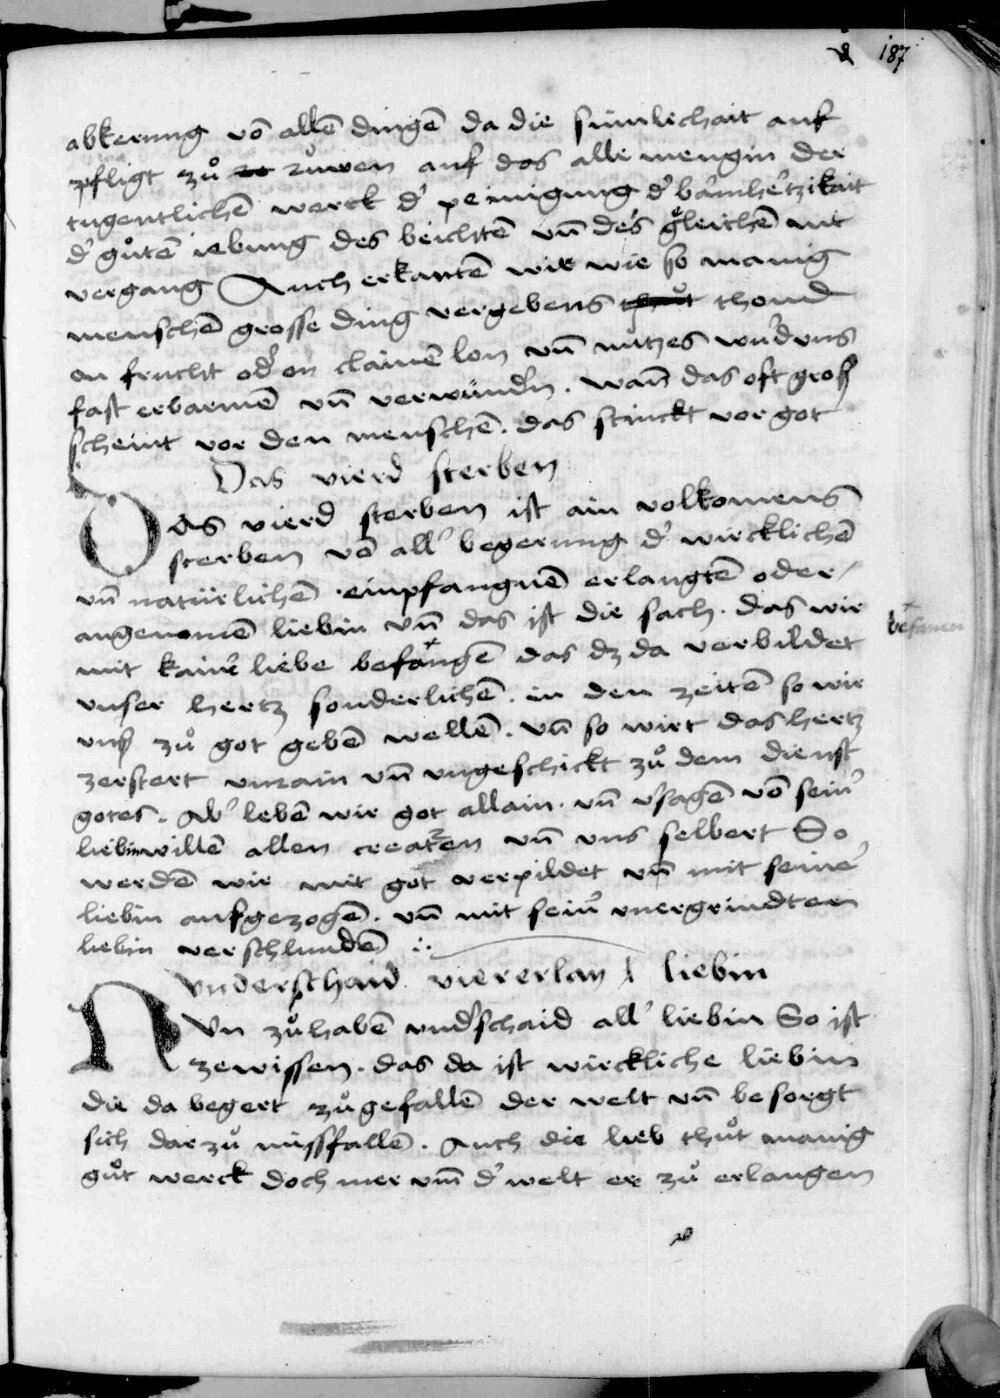 187
abkerung võ allẽ dingẽ da die sinnlichait auf
pfligt zů růwen auf das alle mengin der
tugentlichẽ werck d' peinigung d' barmhertzikait
d' gůtẽ iebung des beichtẽ vñ des gleichẽ nit
vergang Auch erkantẽ wir wie so manig
menschẽ grosse ding vergebens thůt thond
on frucht od' on clainẽ lon vñ nutzes wurd vns
fast erbarmẽ vñ verwundern. wañ das oft groß
scheint vor den menschẽ. das stinckt vor got
Das vierd sterben
Das vierd sterben ist ain volkomens
sterben võ all' begerung d' wircklichẽ
vñ natürlichẽ. einpfangnẽ erlangtẽ oder
angenomẽ liebin vñ das ist die sach. das wir
mit kainer liebe befangẽ das dz da verbildet
vnser hertz sonderlichẽ. in den zeitẽ so wir
vnß zů got gebẽ wellẽ. vñ so wirt das hertz
zerstert vnrain vñ vngeschickt zů dem dienst
gotes. Ab' lebẽ wir got allain. vñ v'sagẽ võ sein'
liebin willẽ allen creaturen vñ vns selbert So
werdẽ wir mit got verpildet vñ mit seine'
liebin aufgezogẽ. vñ mit sein' vnergrindten
liebin verschlundẽ
vnderschaid viererlay liebin
NVn zůhabẽ vnd'schaid all' liebin So ist
zewissen. das da ist wirckliche liebin
die da begert zůgefallẽ der welt vñ besorgt
sich darzů missfallẽ. Auch die lieb thůt manig
gůt werck doch mer vm̃ d' welt er zů erlangen